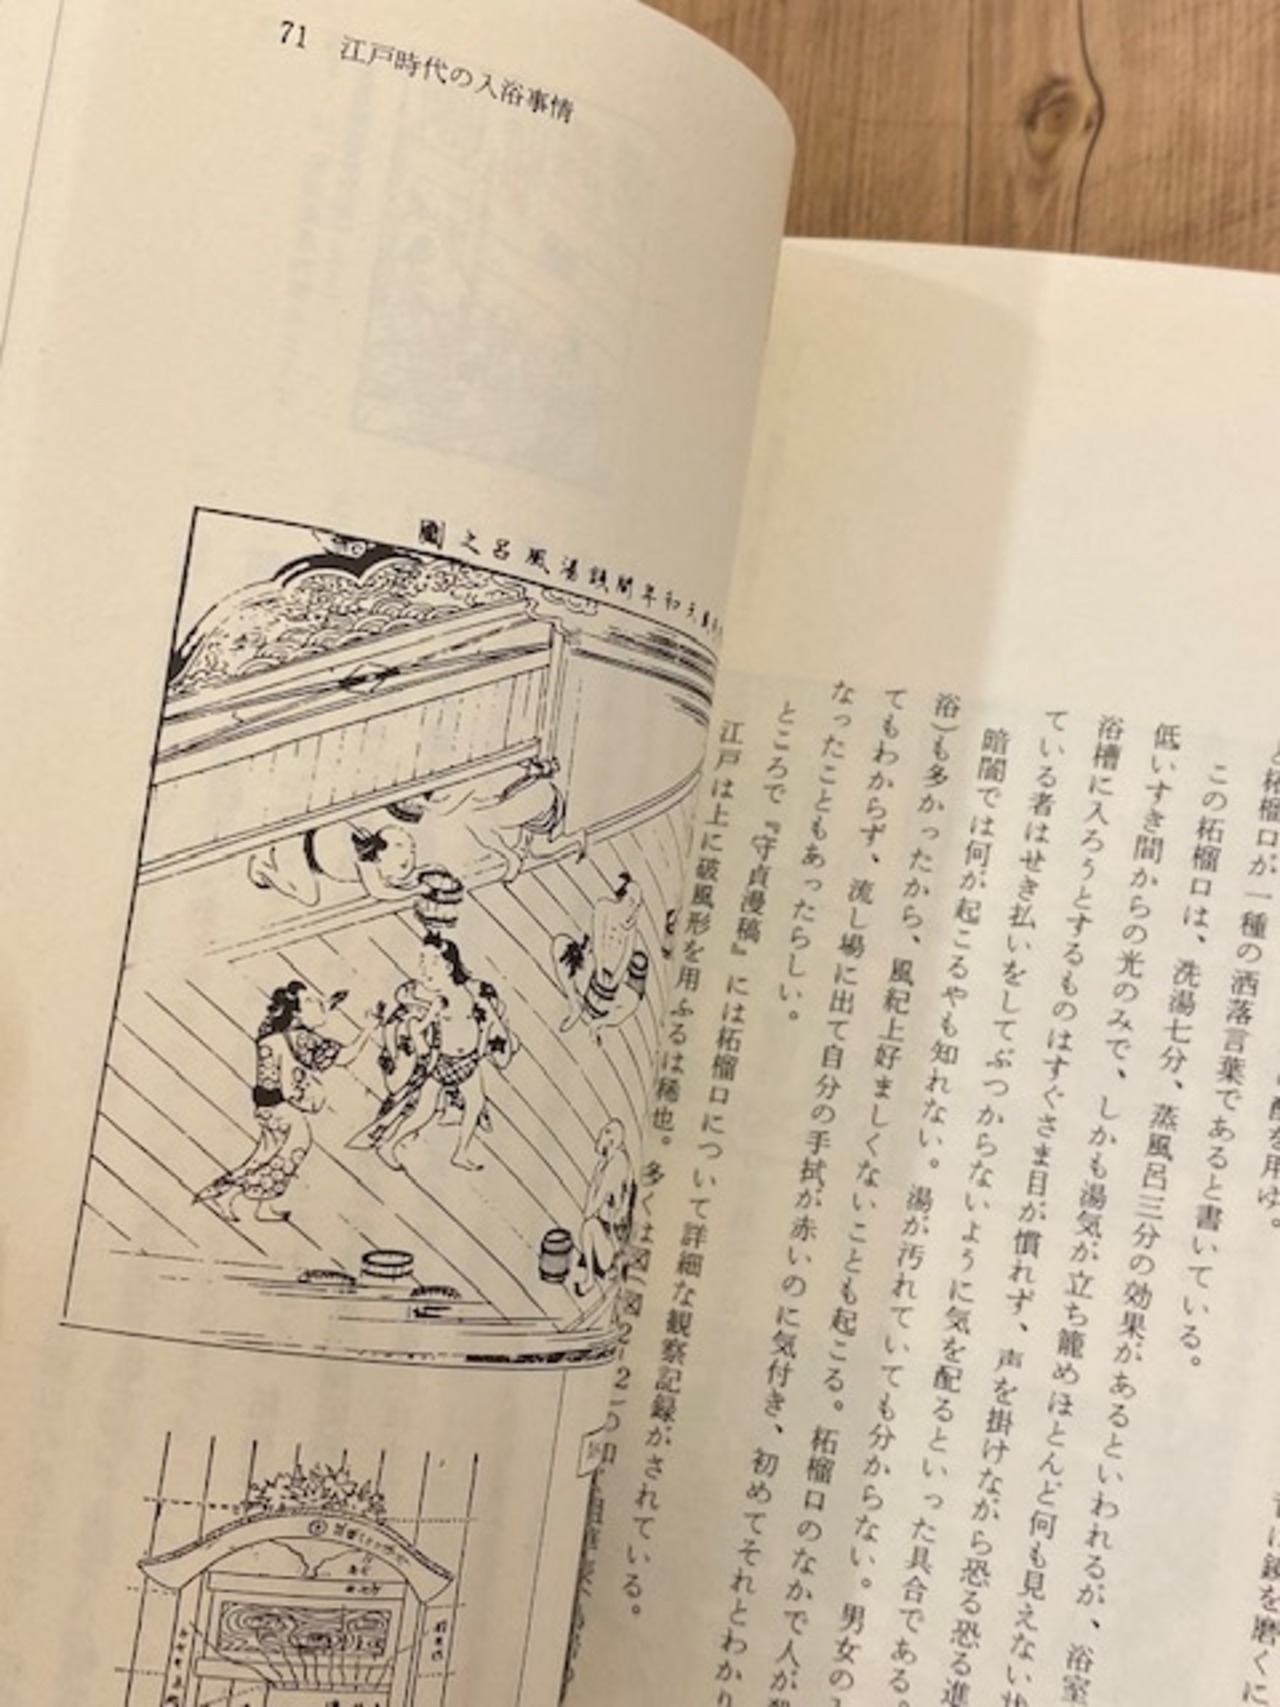 71 江戸時代の入浴事情
と柘榴口が一種の洒落言葉であると書いている。
この柘榴口は、洗湯七分、蒸風呂三分の効果があるといわれるが、浴室
低いすき間からの光のみで、しかも湯気が立ち籠めほとんど何も見えない状
浴槽に入ろうとするものはすぐさま目が慣れず、声を掛けながら恐る恐る進
ている者はせき払いをしてぶつからないように気を配るといった具合である。
暗闇では何が起こるやも知れない。湯が汚れていても分からない。男女の
浴)も多かったから、風紀上好ましくないことも起こる。柘榴口のなかで人が
てもわからず、流し場に出て自分の手拭が赤いのに気付き、初めてそれとわかり
なったこともあったらしい。
ところで『守貞漫稿』には柘榴口について詳細な観察記録がされている。
江戸は上に破風形を用ふるは稀也。多くは図(図2-2
天和年間銭湯風呂之圖